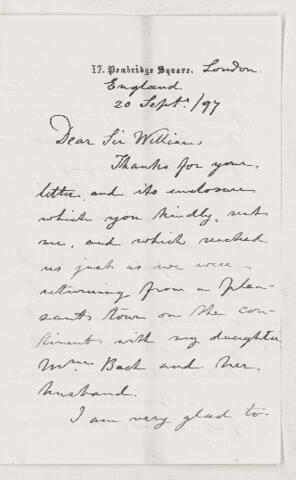 17. Pembridge Square. London.
England.
20 Septr/97
Dear Sir William,
Thanks for your
letter and its enclosure
which you kindly sent
me, and which reached
us just as we were
returning from a plea-
sant town on the con-
tinent with my daughter
Mrs Back and her
husband.
I am very glad to-